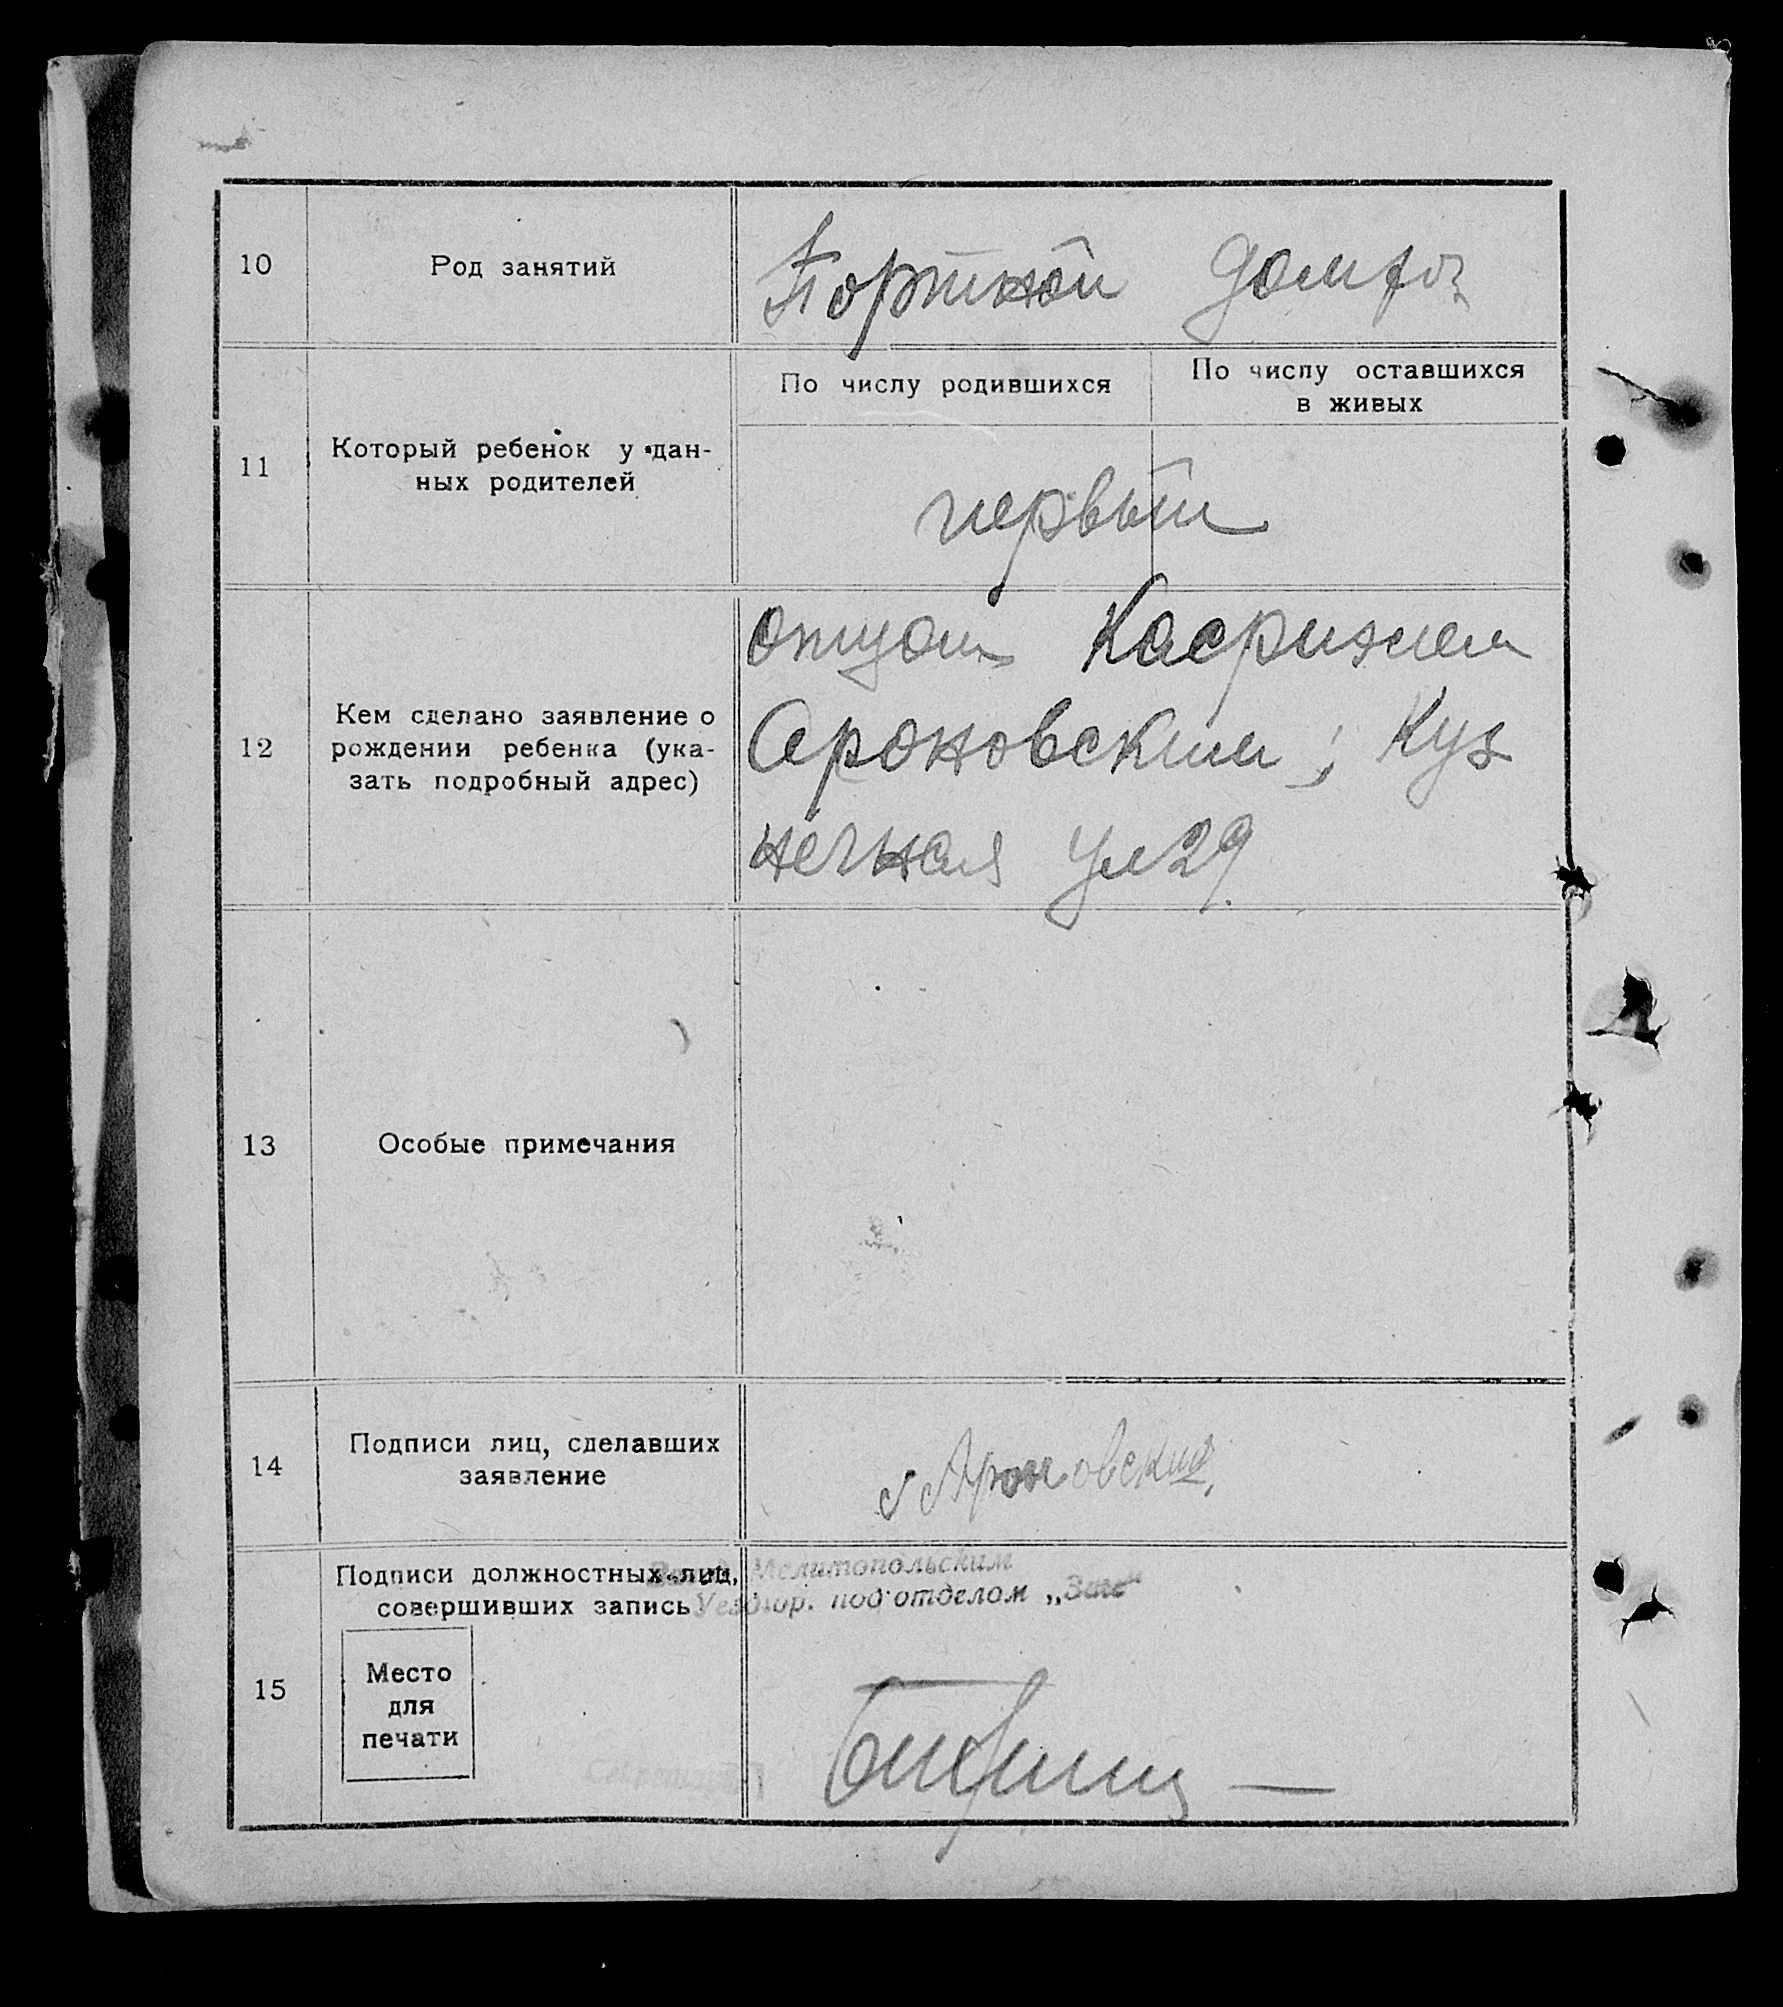 10
Род занятий
Портной
домхоз
По числу родившихся
По числу оставшихся
в живых
11
Который ребенок у дан-
ных родителей
первый
12
Кем сделано заявление о
рождении ребенка (ука-
зать подробный адрес)
отцом Касрилем
Ароновским; Куз
нечная ул 29
13
Особые примечания
14
Подписи лиц, сделавших
заявление
Ароновский
15
Подписи должностных лиц,
совершивших запись
Мелитопольским
Уездгор. подотделом „Загс“
Место
для
печати